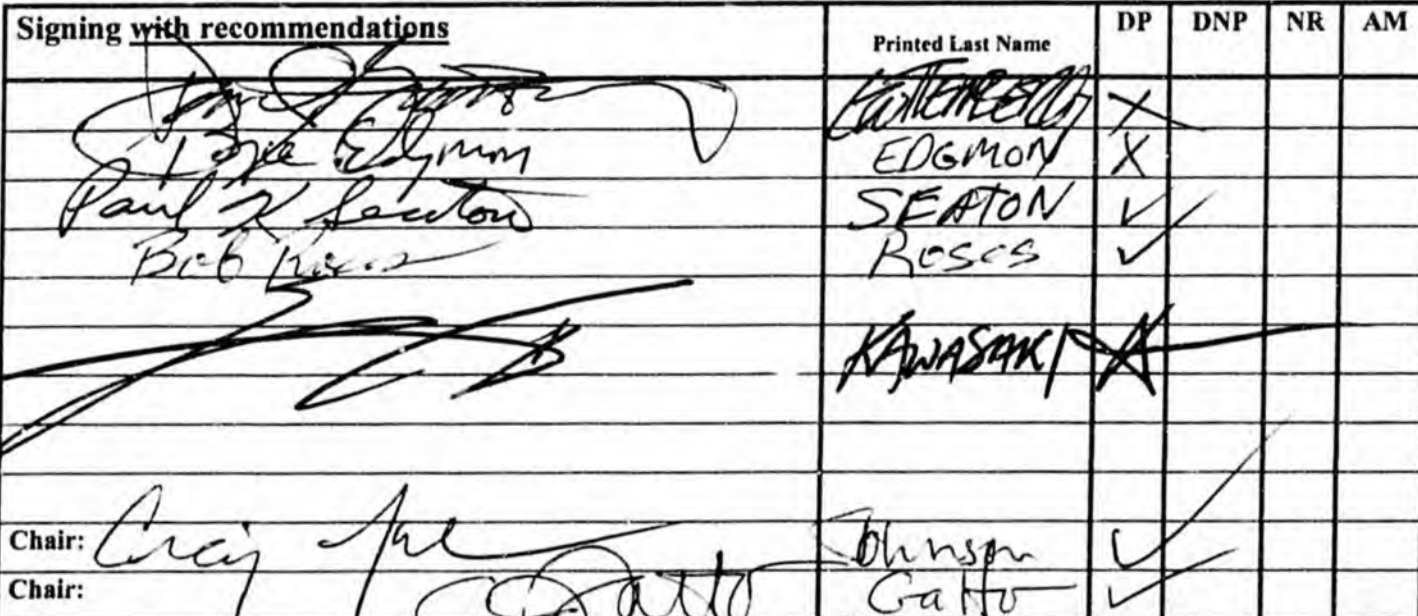 Signing with recommendations Printed Last Name DP DNP NR AM
GUTTENBERG X
Bryce Edgmon EDGMON X
Paul K Seaton SEATON ✓
Bob Roses Roses ✓
KAWASAKI X
Chair: Craig Johnson Johnson ✓
Chair: C Gatto Gatto ✓